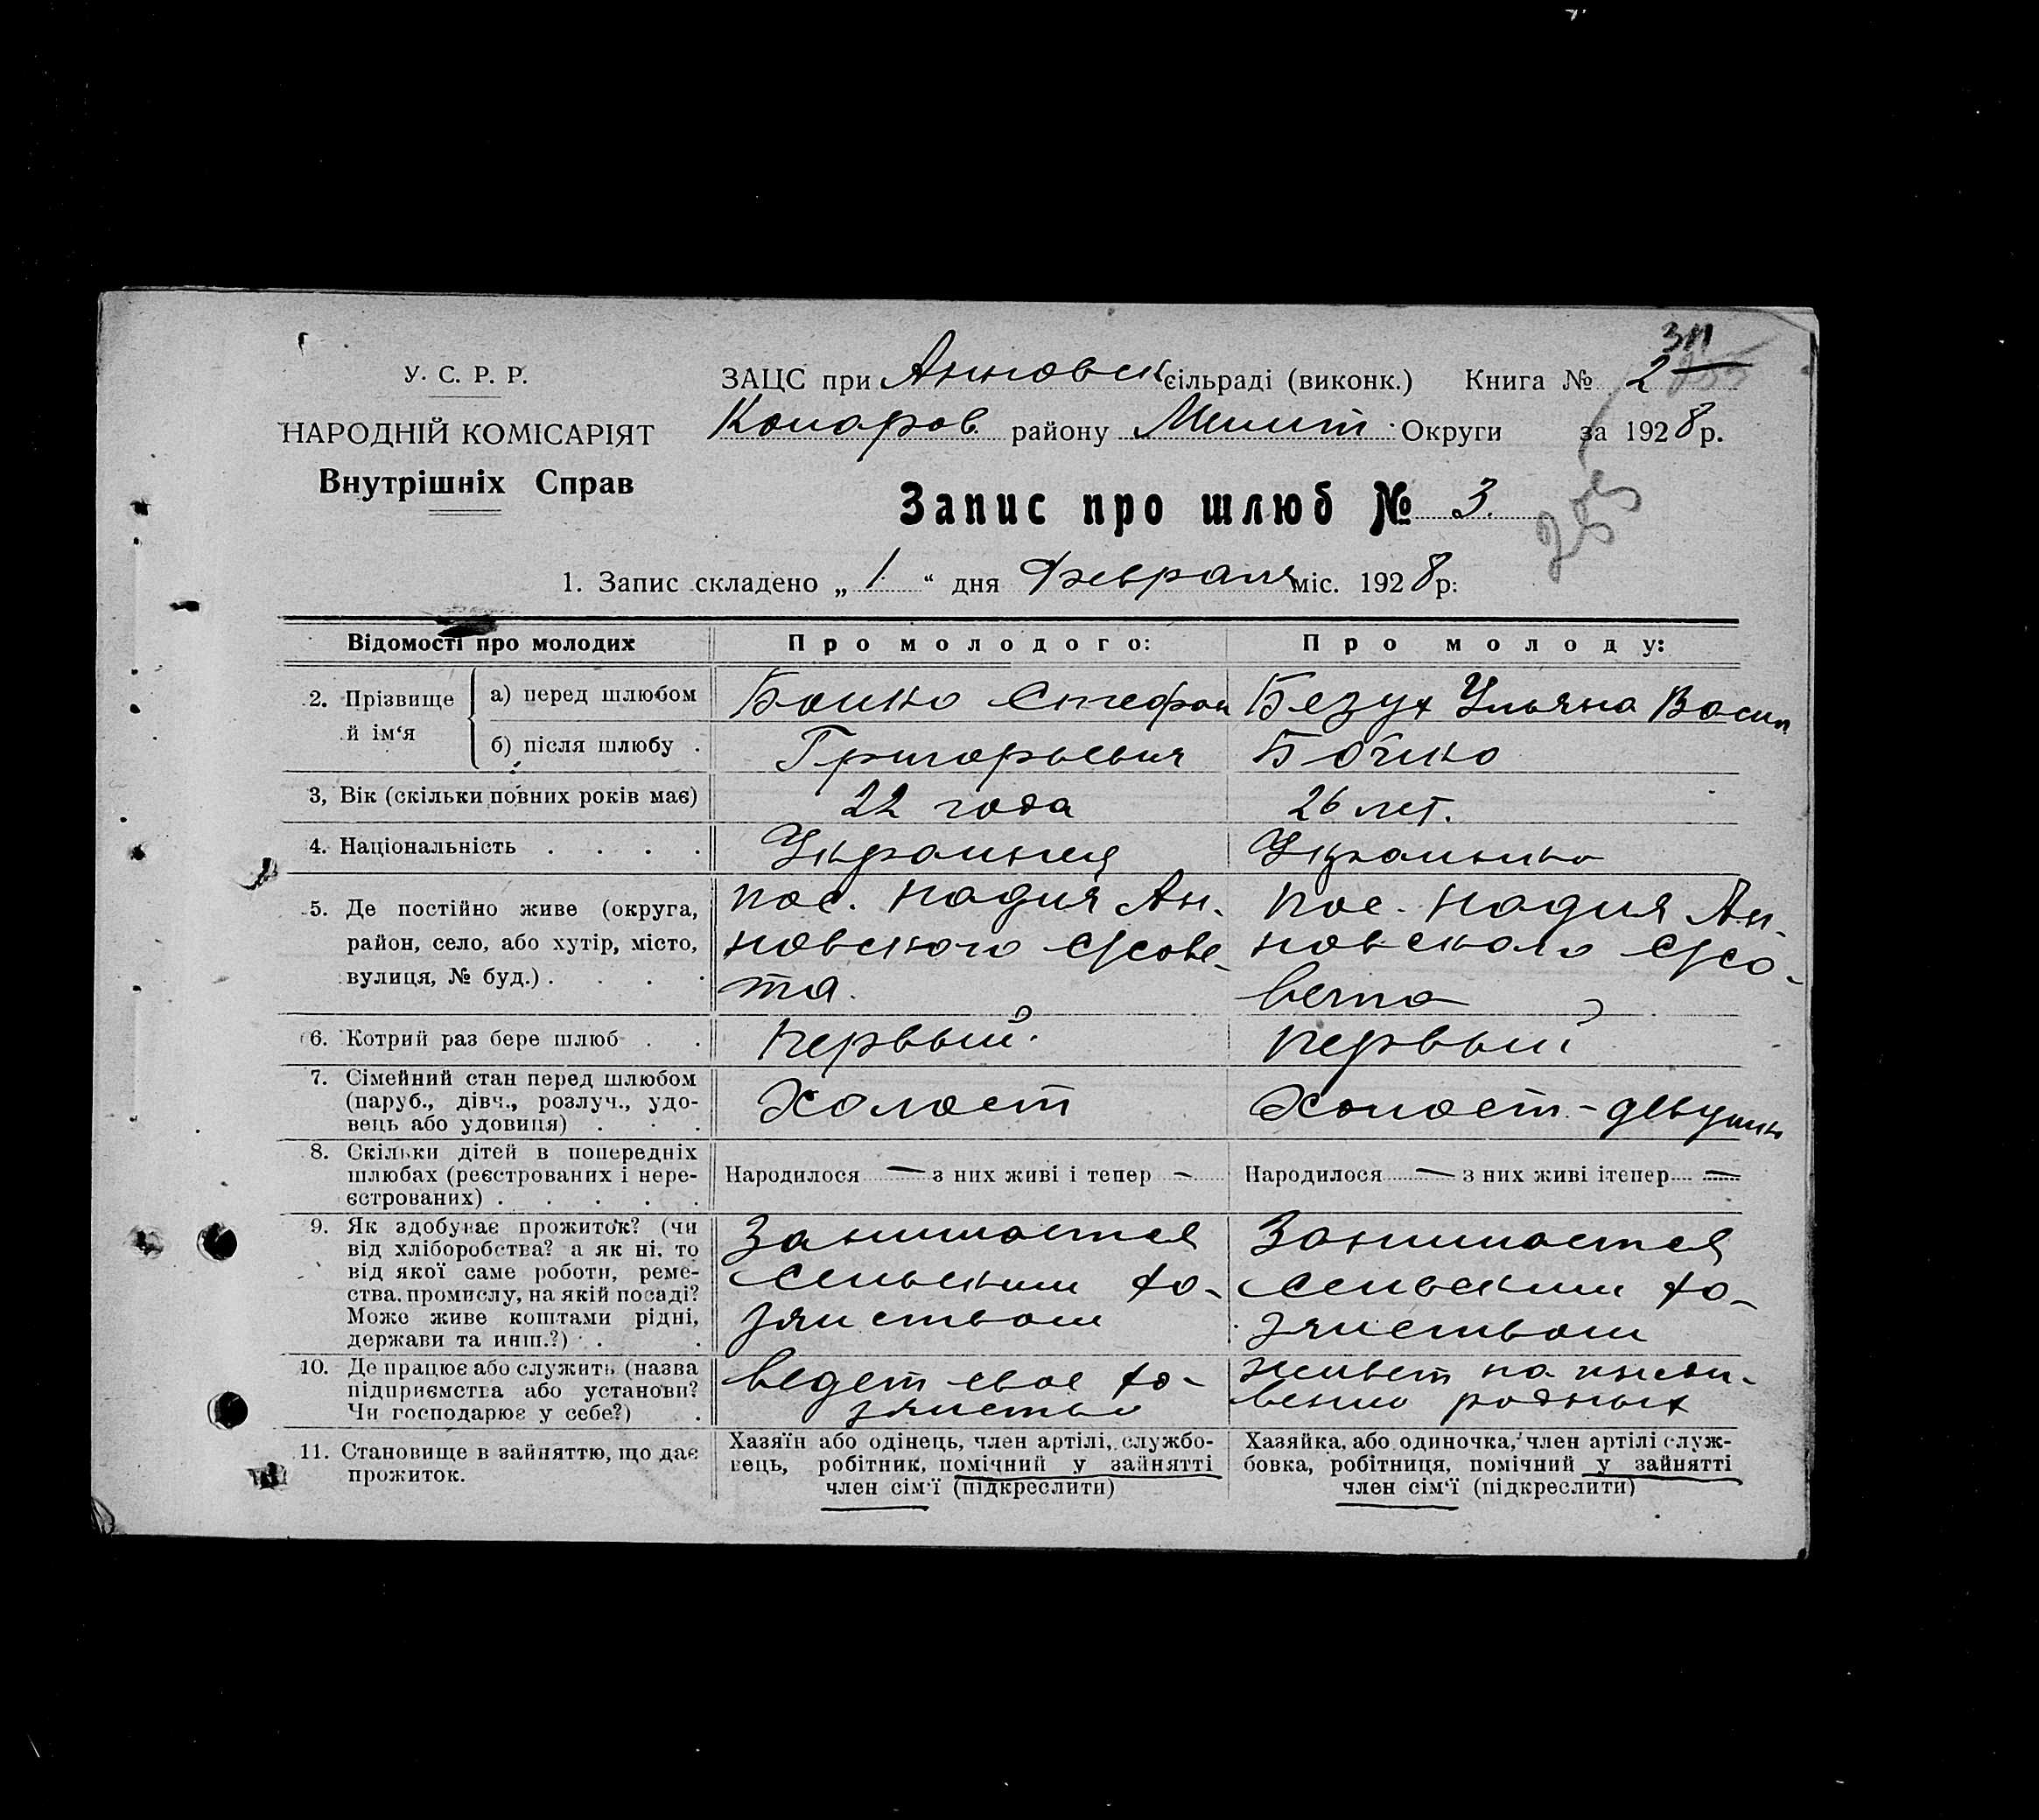 311
У. С. Р. Р.
НАРОДНІЙ КОМІСАРІЯТ
Внутрішніх Справ
ЗАЦС при Анновск сільраді (виконк.) Книга № 2
Комаров. району Мелит. Округи за 1928 р.
255
Запис про шлюб № 3.
1. Запис складено „ 1. “ дня Февраля міс. 1928 р:
Відомості про молодих Про молодого: Про молоду:
2. Прізвище й ім‘я а) перед шлюбом Бойко Стефан Безух Ульяна Васил
б) після шлюбу . Григорьевич Бойко
3, Вік (скільки повних років має) 22 года 26 лет.
4. Національність . . . . Украинец Украинка
5. Де постійно живе (округа, район, село, або хутір, місто, вулиця, № буд.) . . . .
пос. Надия Ан-
новского с/сове-
та.
пос. Надия Ан-
новского с/со-
вета
6. Котрий раз бере шлюб . . первый. первый
7. Сімейний стан перед шлюбом
(паруб., дівч., розлуч., удо-
вець або удовиця) . . . Холост Холост - девушка
8. Скільки дітей в попередніх
шлюбах (реєстрованих і нере-
єстрованих) . . . . .
Народилося — з них живі і тепер —
Народилося — з них живі ітепер —
9. Як здобуває прожиток? (чи
від хліборобства? а як ні, то
від якої саме роботи, реме-
ства, промислу, на якій посаді?
Може живе коштами рідні,
держави та инш.?) . .
Занимается
сельским хо-
зяиством
Занимается
сельским хо-
зяиством
10. Де працює або служить (назва
підприємства або установи?
Чи господарює у себе?) .
ведет свое хо-
зяиство
живет на ижди-
вении родных
11. Становище в зайняттю, що дає
прожиток.
Хазяїн або одінець, член артілі, службо-
вець, робітник, помічний у зайнятті
член сім‘ї (підкреслити)
Хазяйка, або одиночка, член артілі служ-
бовка, робітниця, помічний у зайнятті
член сім‘ї (підкреслити)